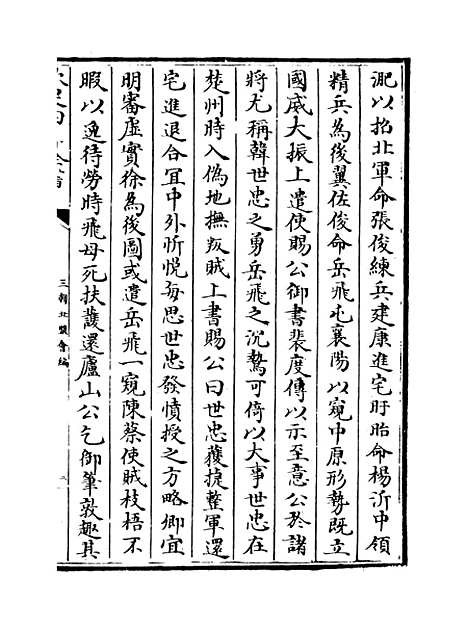 淝以招北軍命張俊練兵建康進宅盱眙命楊沂中領
精兵為後翼佐俊命岳飛屯襄陽以窺中原形勢既立
國威大振上遣使賜公御書裴度傳以示至意公於諸
將尤稱韓世忠之勇岳飛之沉鷙可倚以大事世忠在
楚州時入偽地撫叛賊上書賜公曰世忠獲捷整軍還
宅進退合宜中外忻悅每思世忠發憤授之方略卿宜
明審虛實徐為後圖或遣岳飛一窺陳蔡使賊枝梧不
暇以逸待勞時飛母死扶護還廬山公乞御筆敦趣其
三朝北盟會編